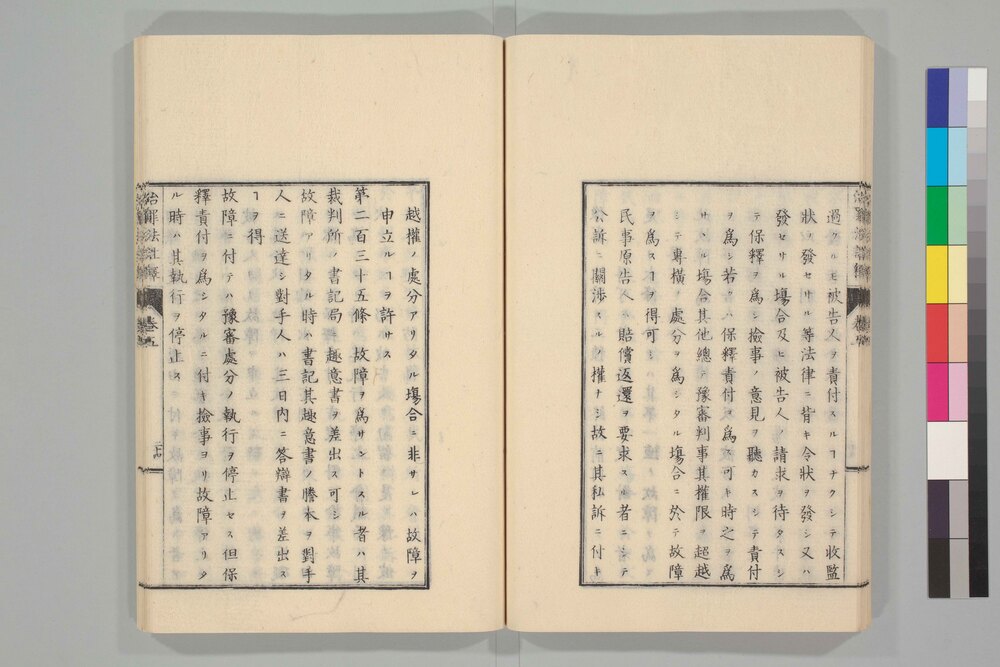 過クルモ被告人ヲ責付スルヿナクシテ收監
狀ヲ發セサル等法律ニ背キ令狀ヲ發シ又ハ
發セサル塲合及ヒ被告人ノ請求ヲ待タスシ
テ保釋ヲ爲シ撿事ノ意見ヲ聽カスシテ責付
ヲ爲シ若クハ保釋責付ヲ爲ス可キ時之ヲ爲
サヽル塲合其他總テ豫審判事其權限ヲ超越
シテ專橫ノ處分ヲ爲シタル塲合ニ於テ故障
ヲ爲スヿヲ得可シ
民事原告人ハ賠償返還ヲ要求スル者ニシテ
公訴ニ關渉スルノ權ナシ故ニ其私訴ニ付キ
越權ノ處分アリタル塲合ニ非サレハ故障ヲ
申立ルヿヲ許サス
第二百三十五條 故障ヲ爲サントスル者ハ其
裁判所ノ書記局ニ趣意書ヲ差出ス可シ
故障アリタル時ハ書記其趣意書ノ謄本ヲ對手
人ニ送達シ對手人ハ三日內ニ答辯書ヲ差出ス
ヿヲ得
故障ニ付テハ豫審處分ノ執行ヲ停止セス但保
釋責付ヲ爲シタルニ付キ撿事ヨリ故障アリタ
ル時ハ其執行ヲ停止ス
治罪法註釋 卷五